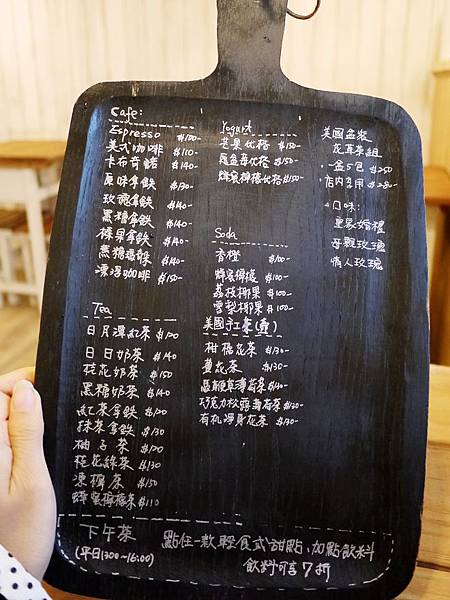 Cafe:
Espresso
美式咖啡 $110-
卡布奇諾 $140-
原味拿鐵 $130-
玫瑰拿鐵 $140-
黑糖拿鐵 $140-
榛果拿鐵 $140-
焦糖瑪 $140-
漂浮咖啡 $150-
Tea
日月潭紅茶 $120
日日奶茶 $140
桂花奶茶 $150
黑糖奶茶 $140
紅茶拿鐵 $120
抹茶拿鐵 $130
柚子茶 $120
桂花綠茶 $130
凍檸茶 $150
蜂蜜檸檬茶 $110
Yogurt
芒果优格 $150-
藍莓优格 $150-
蜂蜜檸檬优格 $150-
Soda
香橙 $100-
蜂蜜檸檬 $100-
荔枝椰果 $100-
雪梨椰果 $100-
美國手工茶(壺)
柑橘花茶 $130-
薑花茶 $130-
馬鞭草薄荷茶 $140-
巧克力松露薄荷茶 $130-
有机淨身花茶 $130-
美國盒裝
花草茶組
一盒5包 $250
店內享用 $280-
口味:
皇家婚禮
母親玫瑰
情人玫瑰
下午茶
(平日13:00~16:00)
點任一款輕食或甜點、加點飲料
飲料可享7折